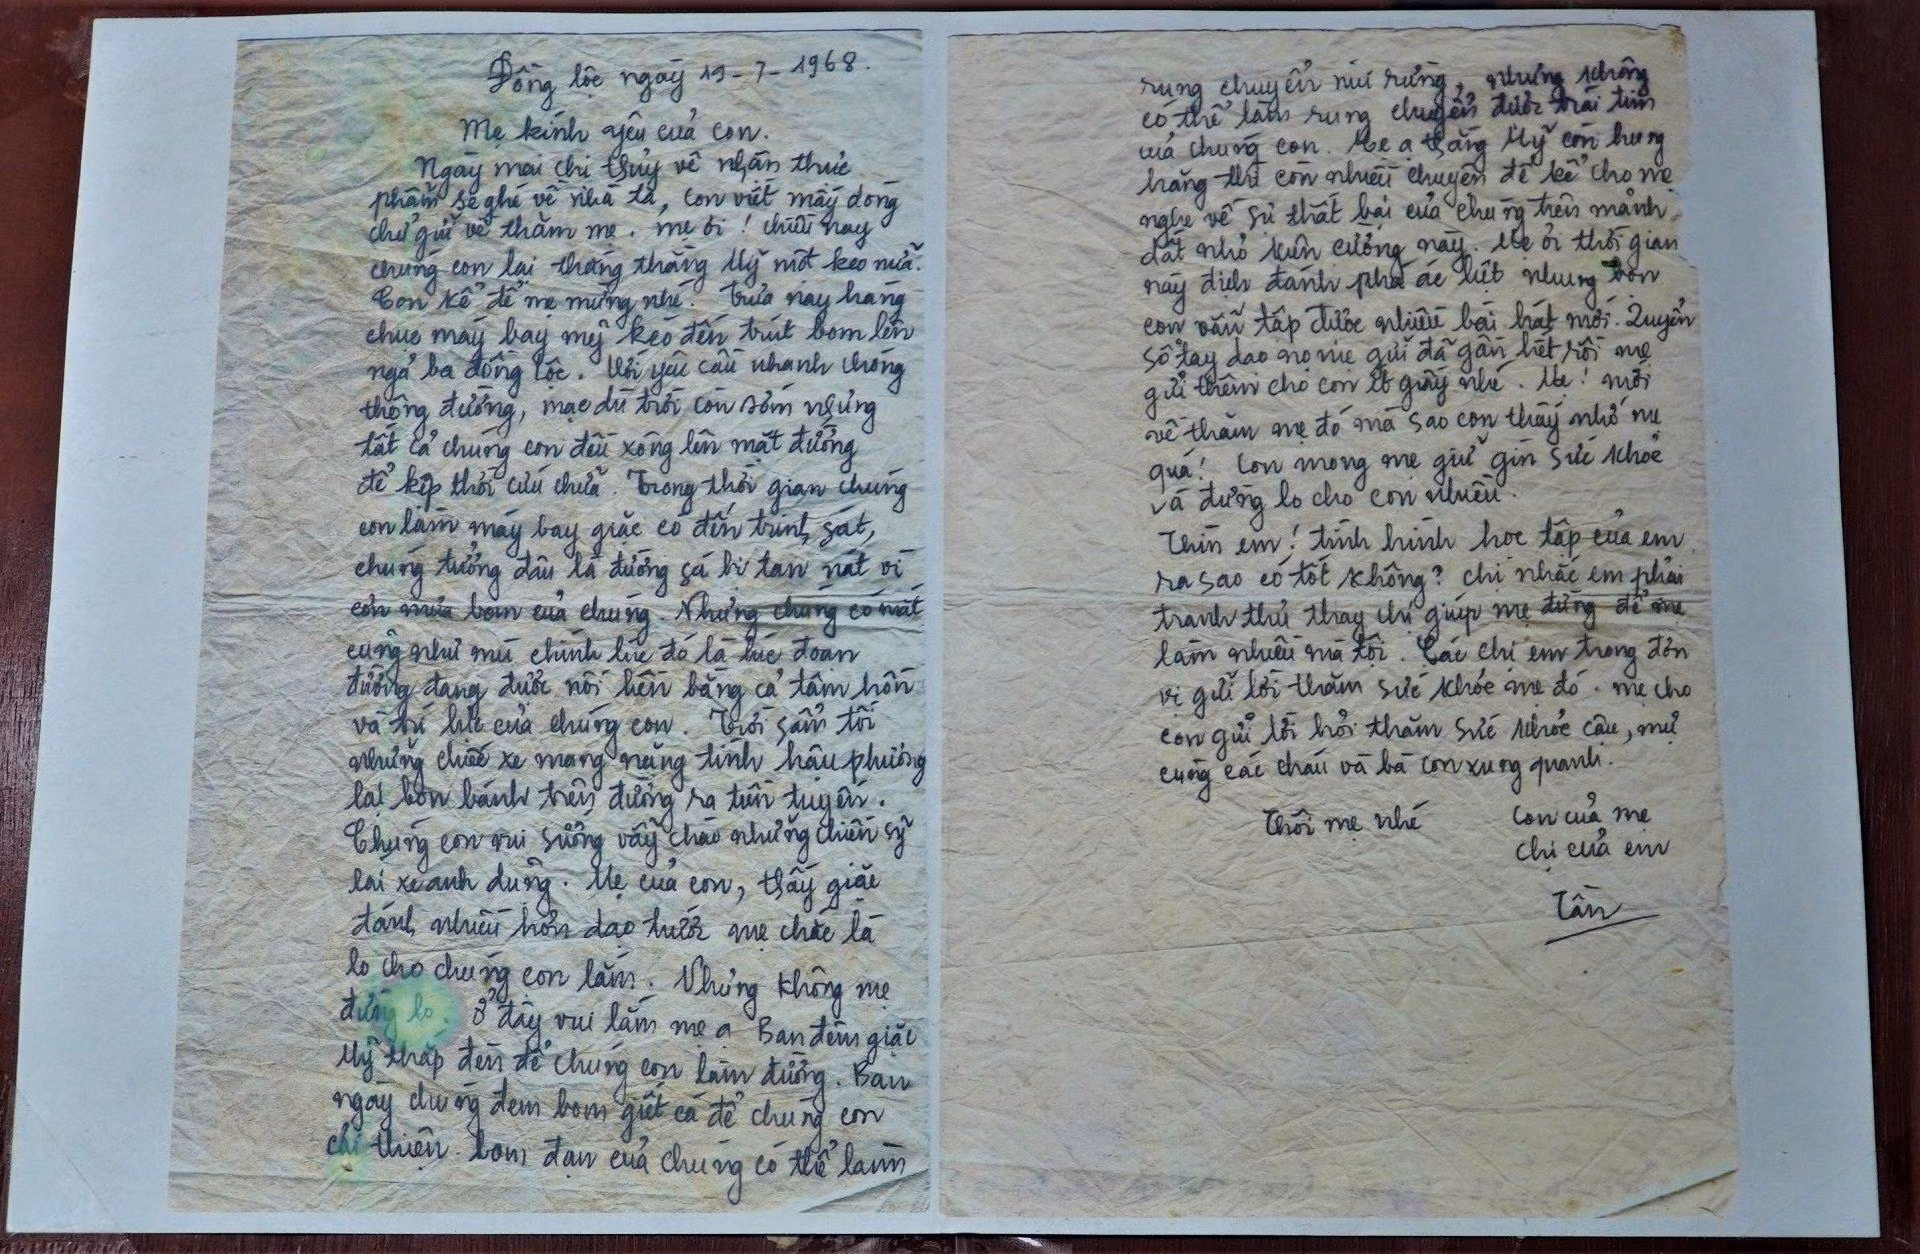 Đồng lộc ngày 19-7-1968.
Mẹ kính yêu của con.
Ngày mai chị thủy về nhận thực
phẩm sẽ ghé về nhà ta, con viết mấy dòng
chữ gửi về thăm mẹ. mẹ ơi! chiều nay
chúng con lại thắng thằng Mỹ một keo nữa.
Con kể để mẹ mừng nhé. Trưa nay hàng
chục máy bay mỹ kéo đến trút bom lên
ngả ba đồng Lộc. Với yêu cầu nhanh chóng
thông đường, mặc dù trời còn sớm nhưng
tất cả chúng con đều xông lên mặt đường
để kịp thời cứu chữa. Trong thời gian chúng
con làm máy bay giặc có đến trinh sát,
chúng tưởng đâu là đường sá bị tan nát vì
cơn mưa bom của chúng. Nhưng chúng có mắt
cũng như mù chính lúc đó là lúc đoạn
đường đang được nối liền bằng cả tâm hồn
và trí lực của chúng con. Trời sẩm tối
những chiếc xe mang nặng tình hậu phương
lại bon bánh trên đường ra tiền tuyến.
Chúng con vui sướng vẫy chào những chiến sỹ
lái xe anh dũng. Mẹ của con, thấy giặc
đánh nhiều hơn dạo trước mẹ chắc là
lo cho chúng con lắm. Nhưng không mẹ
đừng lo. ở đây vui lắm mẹ ạ Ban đêm giặc
Mỹ thắp đèn để chúng con làm đường. Ban
ngày chúng đem bom giết cá để chúng con
cải thiện. bom đạn của chúng có thể làm
rung chuyển núi rừng, nhưng không
có thể làm rung chuyển được trái tim
của chúng con. Mẹ ạ thằng Mỹ còn hung
hăng thì còn nhiều chuyện để kể cho mẹ
nghe về sự thất bại của chúng trên mảnh
đất nhỏ kiên cường này. Mẹ ơi thời gian
này địch đánh phá ác liệt nhưng bọn
con vẫn tập được nhiều bài hát mới. Quyển
sổ tay dạo nọ mẹ gửi đã gần hết rồi mẹ
gửi thêm cho con ít giấy nhé. Mẹ! mới
về thăm mẹ đó mà sao con thấy nhớ mẹ
quá! Con mong mẹ giữ gìn sức khỏe
và đừng lo cho con nhiều.
Thìn em! tình hình học tập của em
ra sao có tốt không? chị nhắc em phải
tranh thủ thay chị giúp mẹ đừng để mẹ
làm nhiều mà tội. Các chị em trong đơn
vị gửi lời thăm sức khỏe mẹ đó. mẹ cho
con gửi lời hỏi thăm sức khỏe cậu, mự
cùng các cháu và bà con xung quanh.
Thôi mẹ nhé
Con của mẹ
chị của em
Tần